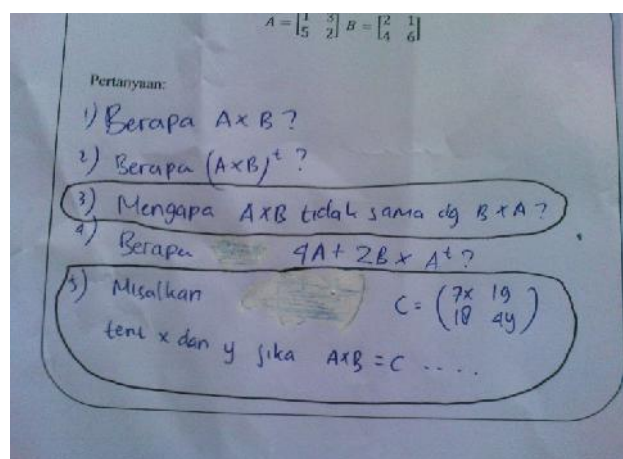 A = [1 3 5 2] B = [2 1 4 6]
Pertanyaan:
1) Berapa A x B ?
2) Berapa (A x B)ᵗ ?
3) Mengapa A x B tidak sama dg B x A ?
4) Berapa 4A + 2B x Aᵗ ?
5) Misalkan C = (7x 19 18 4y)
tent x dan y jika A x B = C ....